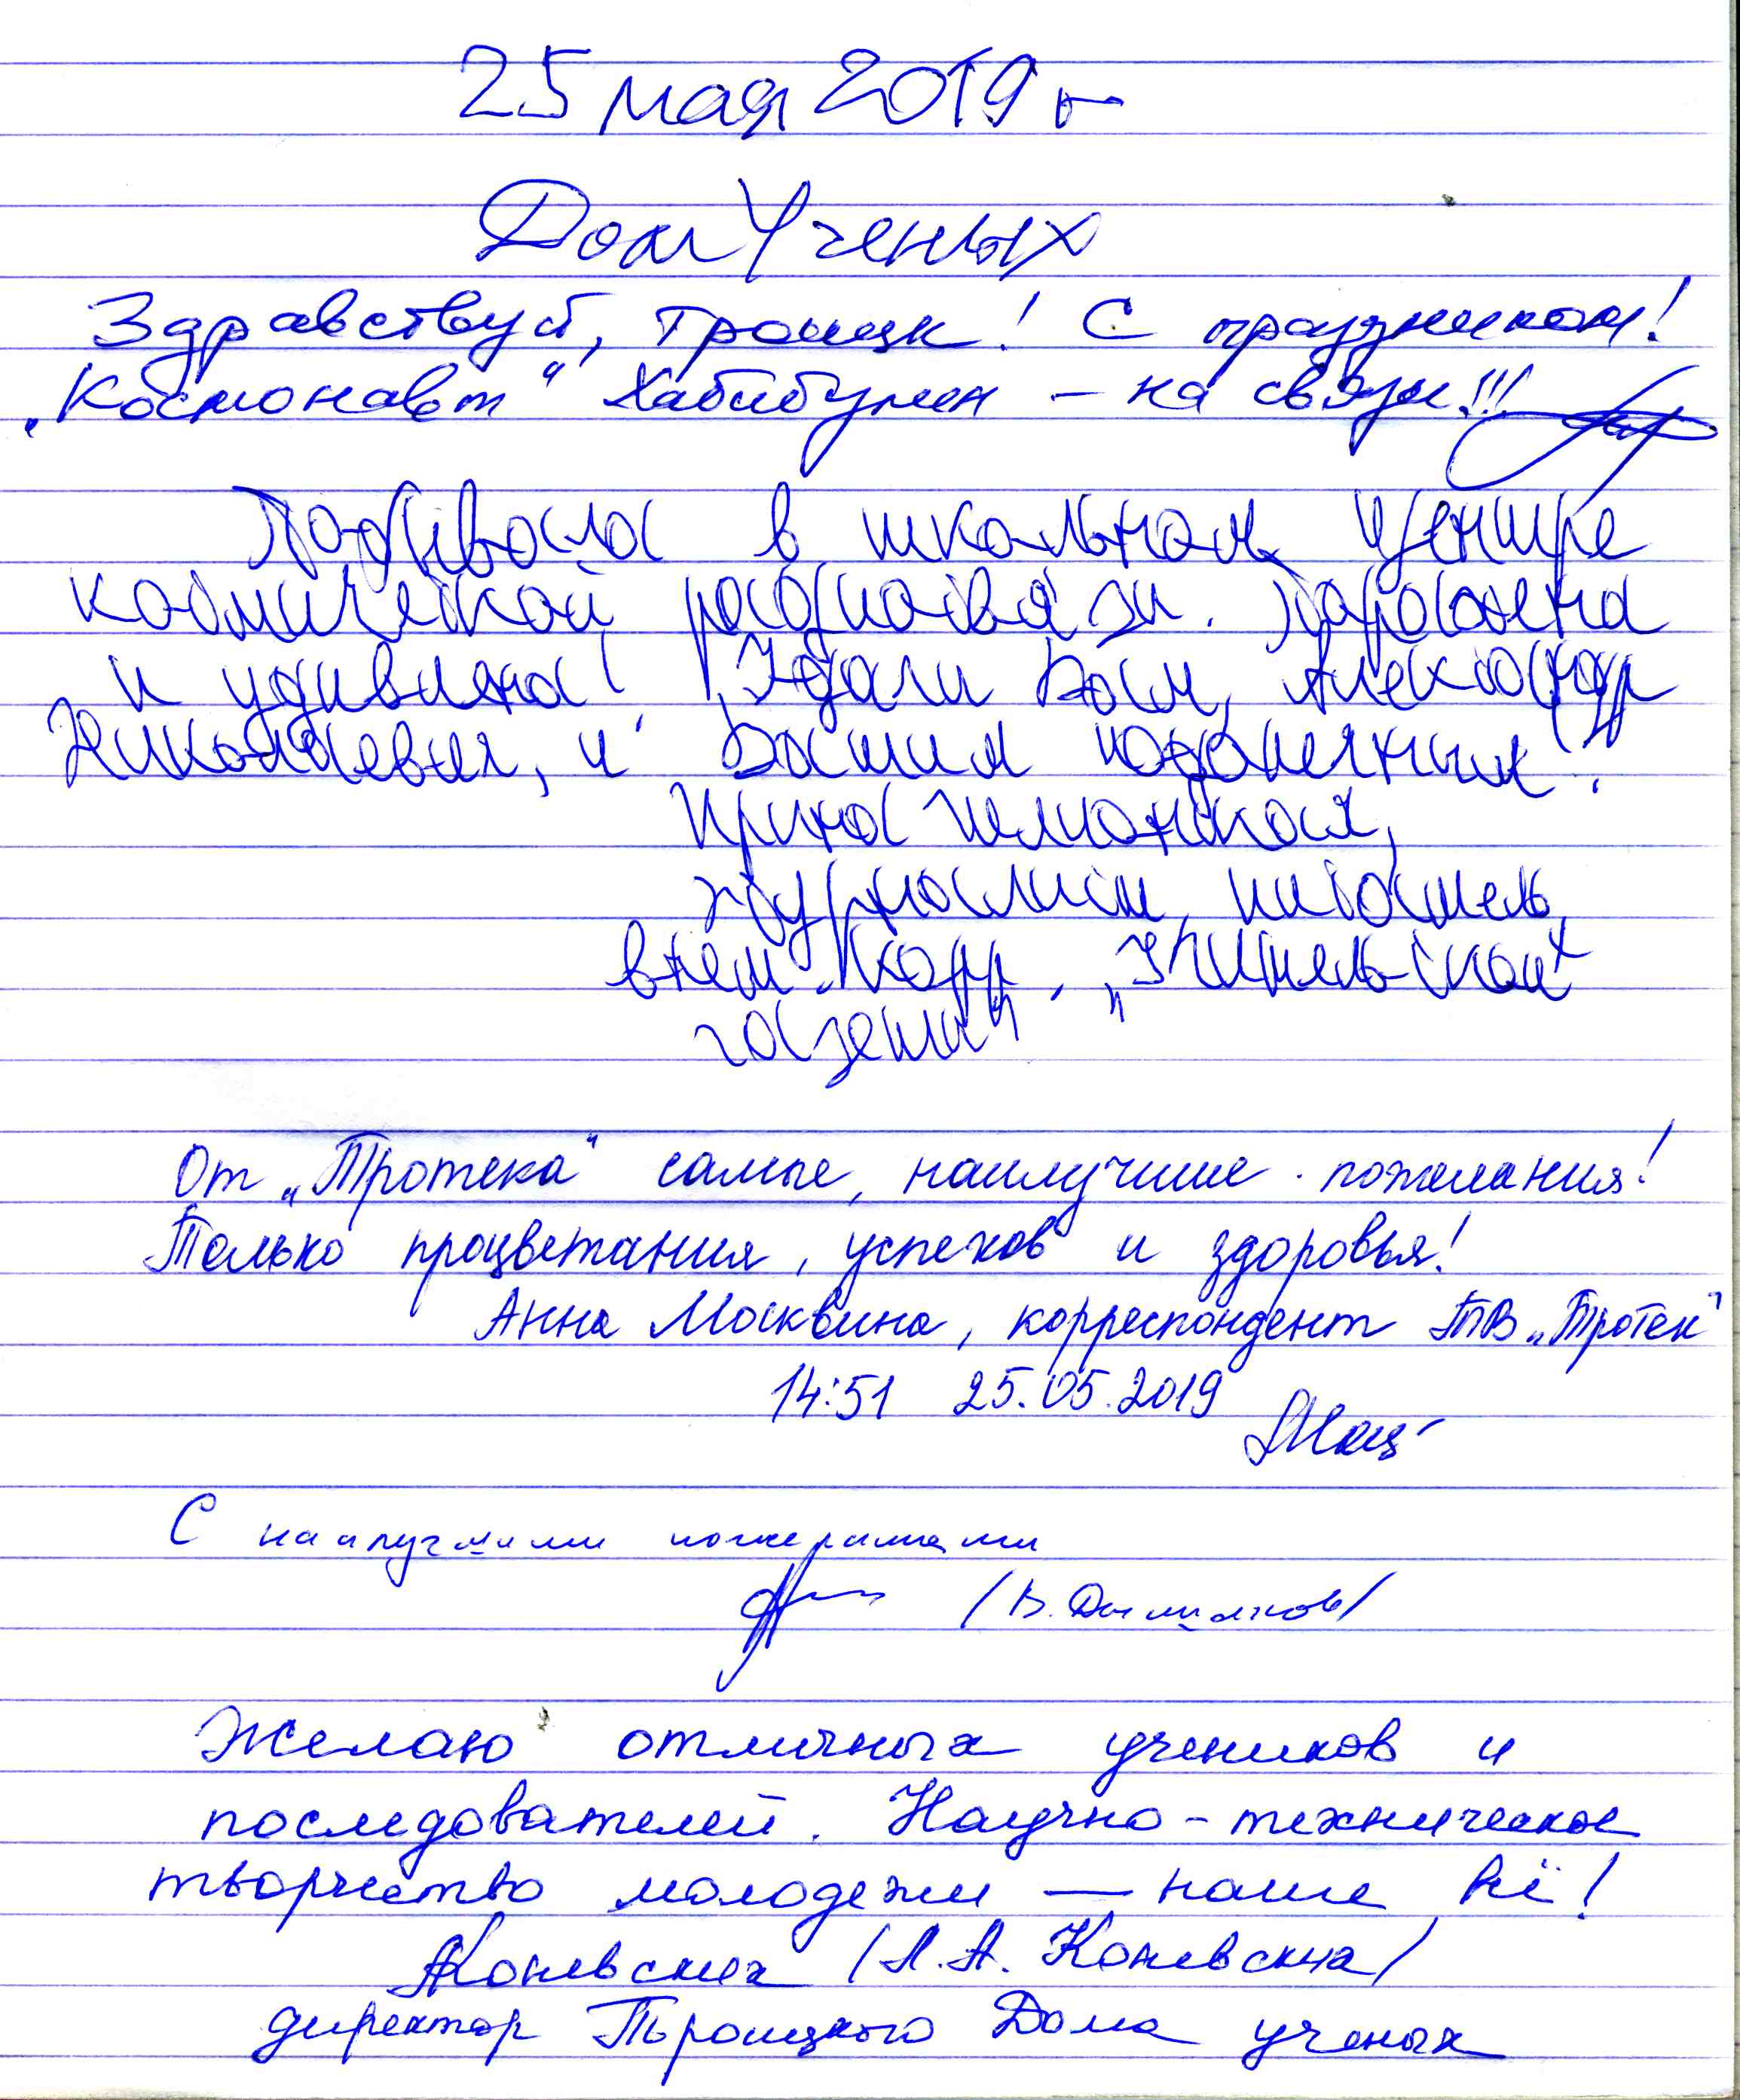 25 мая 2019 г
Дом Ученых
Здравствуй, Троицк! С праздником!
„Космонавт" Хабибулин – на связи!!!
Побывала в школьном центре
космической радиосвязи. Поражена
и удивлена! Удачи Вам, Александр
Николаевич, и Вашим подопечным!
Ирина
журналист, писатель,
внешт. корр. „Учительской
газеты"
От „Тротека" самые, наилучшие пожелания!
Только процветания, успехов и здоровья!
Анна Москвина, корреспондент ТВ „Тротек"
14:51 25.05.2019
С наилучшими пожеланиями
/В.
Желаю отличных учеников и
последователей. Научно-техническое
творчество молодежи — наше всё!
Коневских /Л.А. Коневских/
директор Троицкого Дома ученых